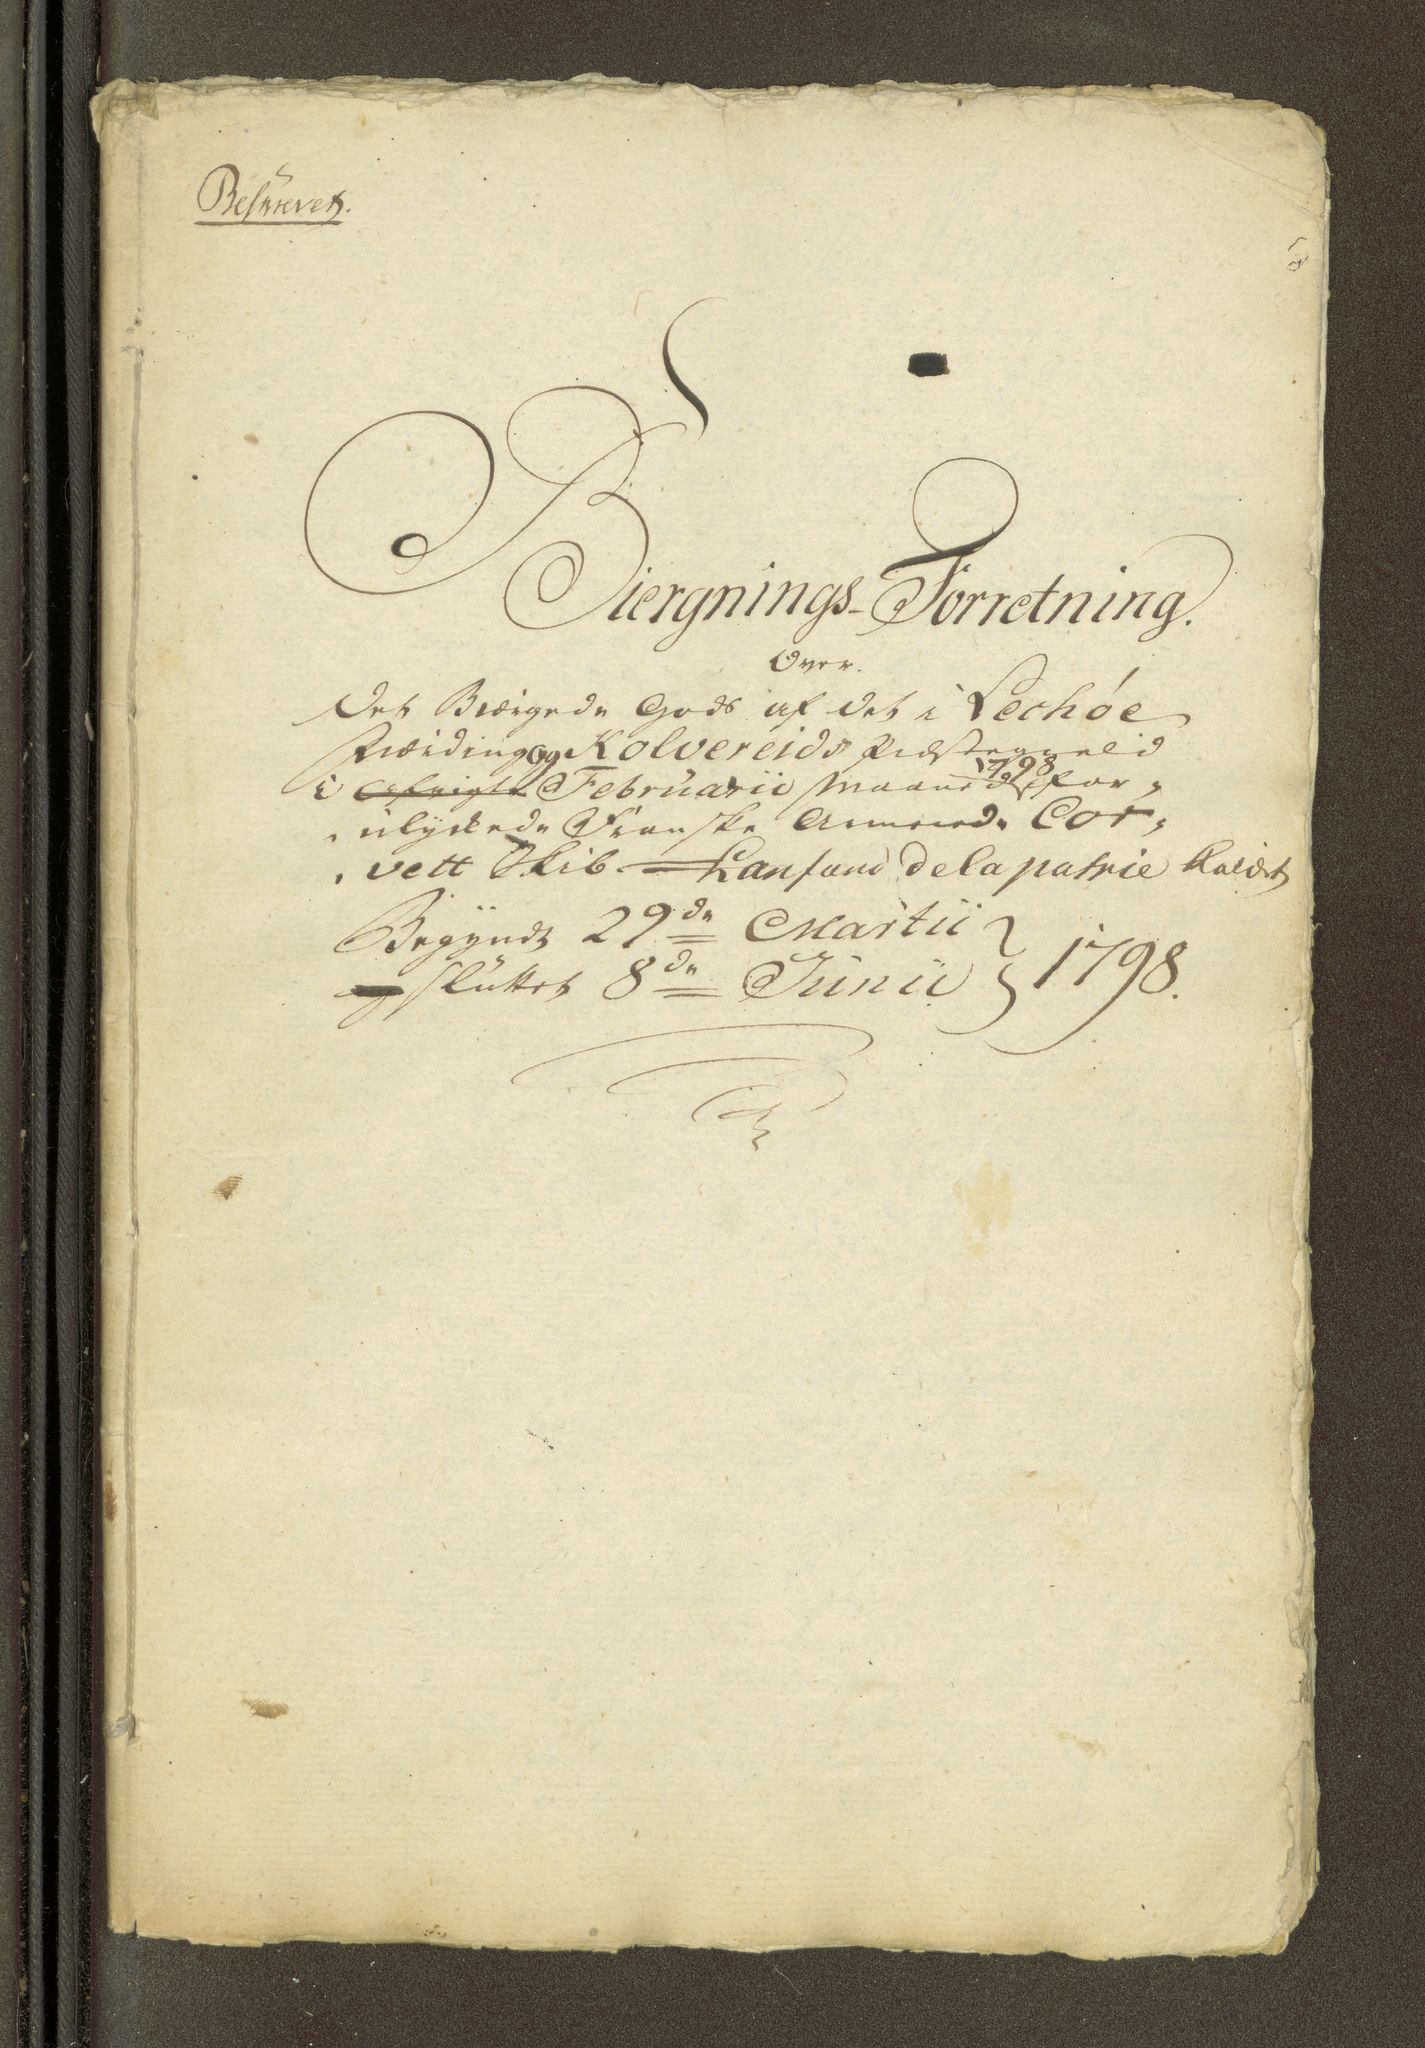 Beskrevet.
Biergnings-Forretning.
Over.
Det Biergede Gods af det i Lechøe
Fierding og Kolvereids Præstegield
i Februarii Maaned 1798 for-
ulykkede Franske Armerede Cor-
vett Skib Lanfant de la patrie kaldet
Begyndt 29de Martii
og sluttet 8de Junii 1798.